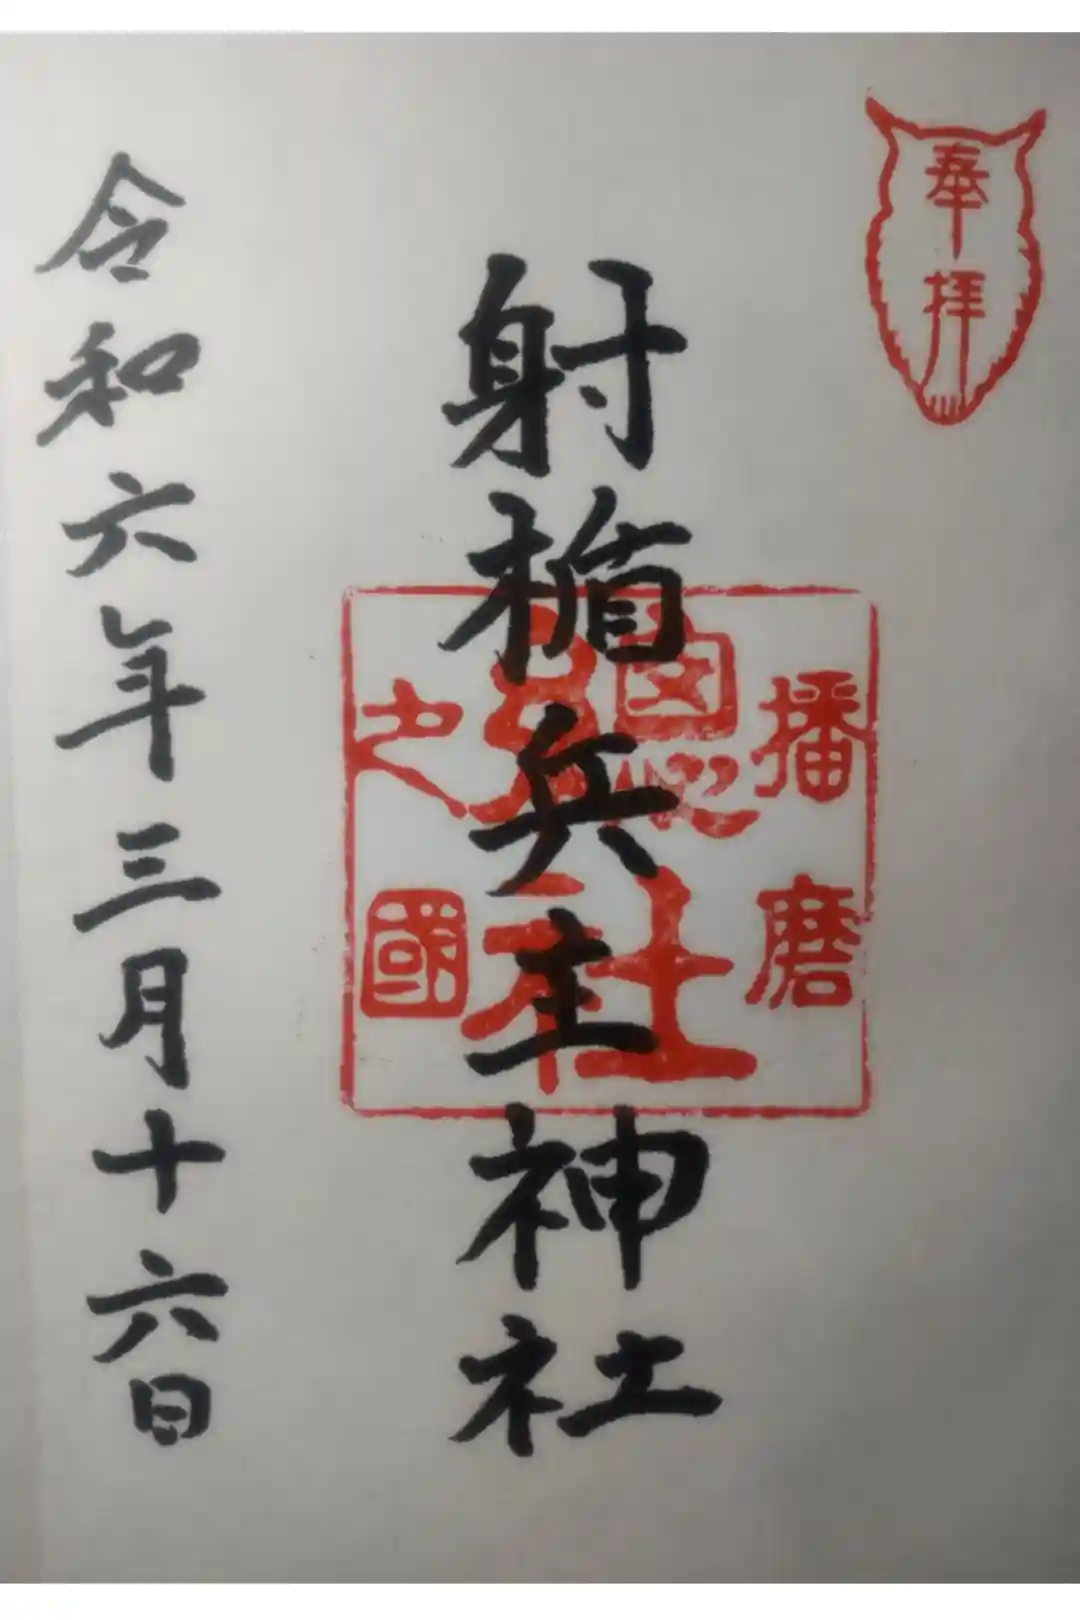 奉拝
射楯兵主神社
播磨
總社
之國
令和六年三月十六日